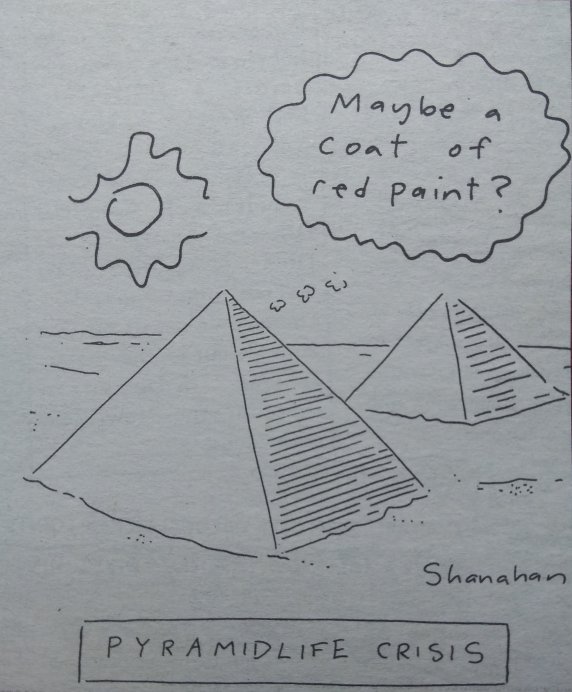 Maybe a
coat of
red paint?
Shanahan
PYRAMIDLIFE CRISIS